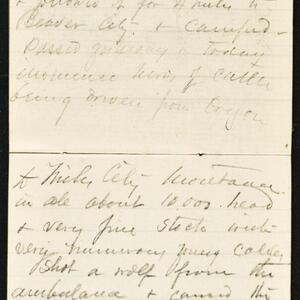 & followed it for 4 miles to
Beaver City & camped -
Passed yesterday & today
immense herds of cattle
being driven from Oregon
to Miles City Montana.
in all about 10.000. head
& very fine stock with
very numerous young calves
Shot a wolf from the
ambulance & caused the